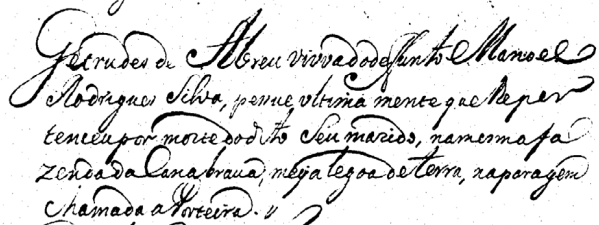 Getrudes de Abreu viuva do defunto Manoel
Rodrigues Silva, possue ultima mente que lhe per
tenceu por morte do dito Seu marido, na mesma fa
zenda da Canabraua, meya legoa de terra, na paragem
chamada a Porteira.